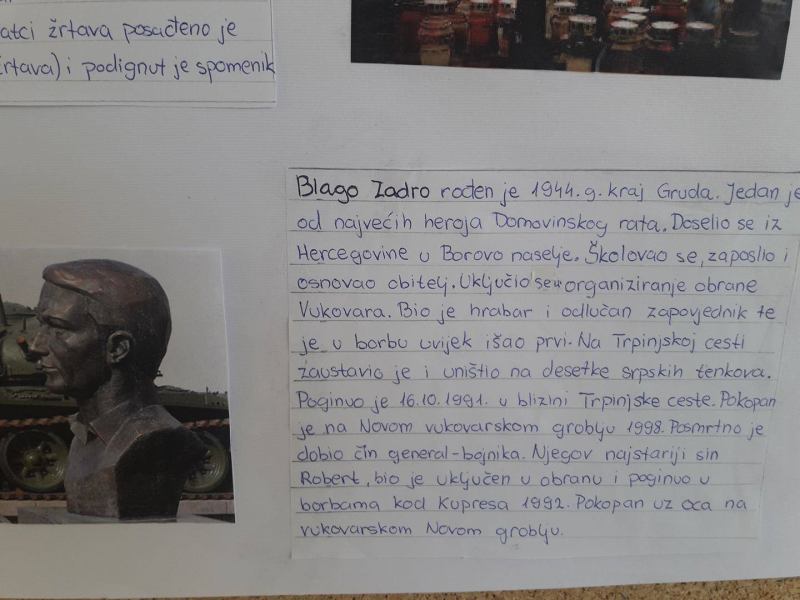 atci žrtava posađeno je
žrtava) i podignut je spomenik
Blago Zadro rođen je 1944. g. kraj Gruda. Jedan je
od najvećih heroja Domovinskog rata. Doselio se iz
Hercegovine u Borovo naselje. Školovao se, zaposlio i
osnovao obitelj. Uključio se u organiziranje obrane
Vukovara. Bio je hrabar i odlučan zapovjednik te
je u borbu uvijek išao prvi. Na Trpinjskoj cesti
zaustavio je i uništio na desetke srpskih tenkova.
Poginuo je 16.10.1991. u blizini Trpinjske ceste. Pokopan
je na Novom vukovarskom groblju 1998. Posmrtno je
dobio čin general-bojnika. Njegov najstariji sin
Robert, bio je uključen u obranu i poginuo u
borbama kod Kupresa 1992. Pokopan uz oca na
vukovarskom Novom groblju.